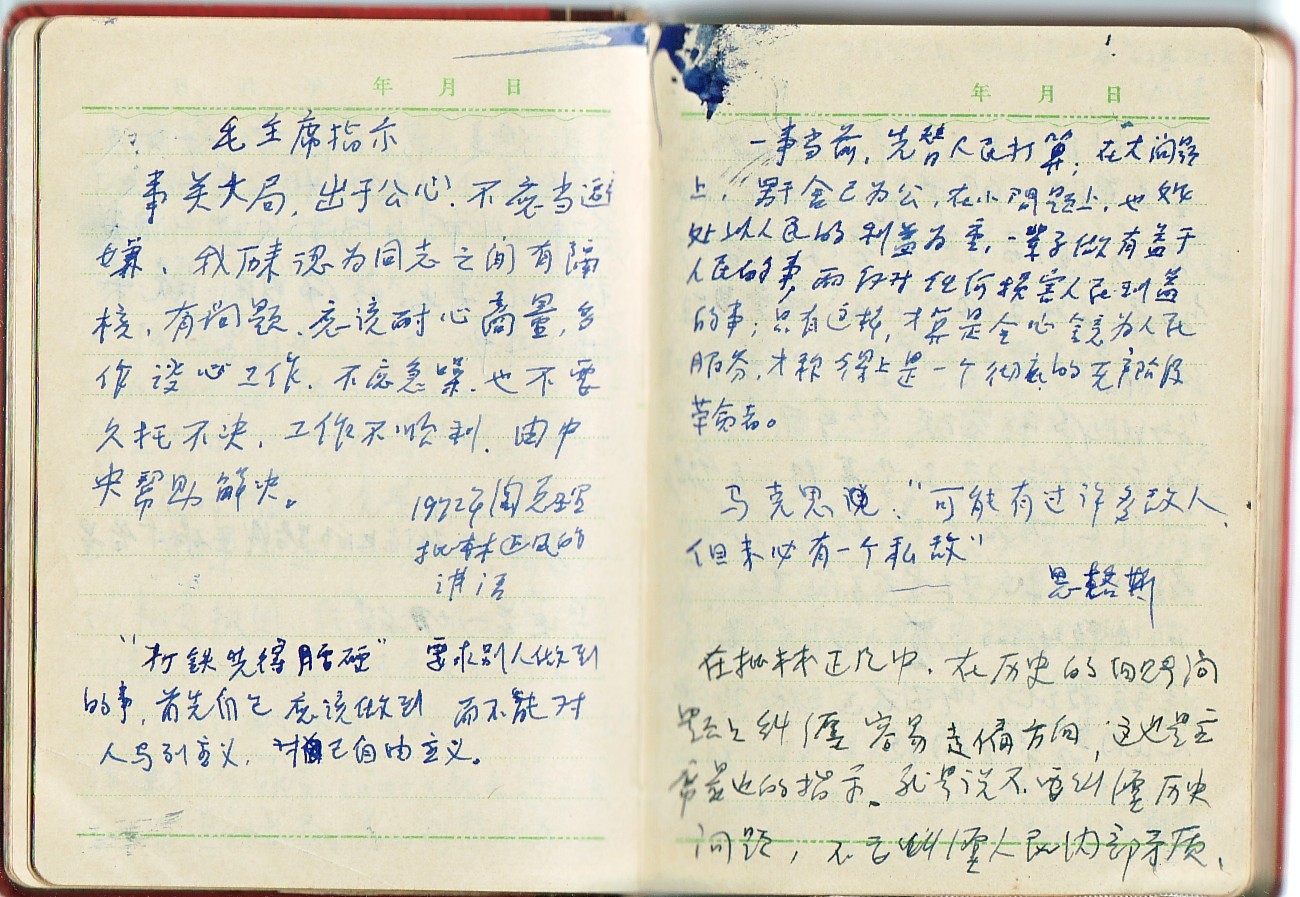 年 月 日
毛主席指示
事关大局,出于公心!不应当避
嫌、我历来认为同志之间有隔
核,有问题、应该耐心商量,合
作谈心工作、不应急噪、也不要
久托不决,工作不顺利,由中
央帮助解决。
1972年周总理
批林正风的
讲话
“打铁先得自硬” 要求别人做到
的事,首先自己应该做到 而不能对
人马列主义,对自己自由主义。
年 月 日
一事当前,先替人民打算;在大问题
上,勇于舍己为公,在小问题上,也处
处以人民的利益为重,一辈子做有益于
人民的事,而反对任何损害人民利益
的事;只有这样,才算是全心全意为人民
服务,才称得上是一个彻底的无产阶级
革命者。
马克思说:“可能有过许多敌人,
但未必有一个私敌”
恩格斯
在批林正风中,在历史的旧账问
题上纠缠容易走偏方向,这也是主
席最近的指示。就是说不要纠缠历史
问题,不去纠缠人民内部矛盾,